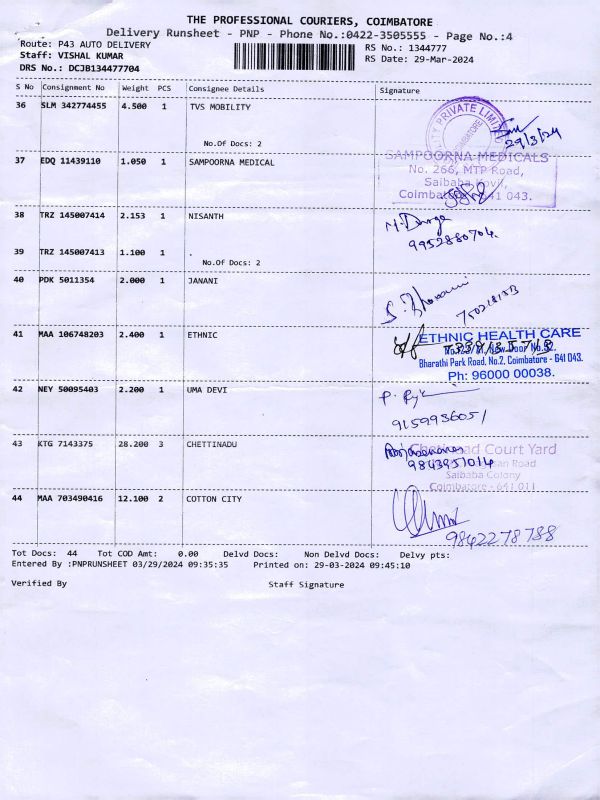 THE PROFESSIONAL COURIERS, COIMBATORE
Delivery Runsheet - PNP - Phone No.:0422-3505555 - Page No.:4
Route: P43 AUTO DELIVERY
RS No.: 1344777
Staff: VISHAL KUMAR
RS Date: 29-Mar-2024
DRS No.: DCJB134477704
S No Consignment No Weight PCS Consignee Details Signature
36 SLM 342774455 4.500 1 TVS MOBILITY
PRIVATE LIMITED
COIMBATORE
29/3/24
No.Of Docs: 2
37 EDQ 11439110 1.050 1 SAMPOORNA MEDICAL
SAMPOORNA MEDICALS
No. 266, MTP Road,
Saibaba Kovil,
Coimbatore - 641 043.
38 TRZ 145007414 2.153 1 NISANTH
9952880704.
39 TRZ 145007413 1.100 1 .
No.Of Docs: 2
40 PDK 5011354 2.000 1 JANANI
41 MAA 106748203 2.400 1 ETHNIC
ETHNIC HEALTH CARE
Bharathi Park Road, No.2, Coimbatore - 641 043.
Ph: 96000 00038.
42 NEY 50095403 2.200 1 UMA DEVI
9159936051
43 KTG 7143375 28.200 3 CHETTINADU
Chettinad Court Yard
9843951014
Road
Saibaba Colony
Coimbatore - 641 011
44 MAA 703490416 12.100 2 COTTON CITY
9842278788
Tot Docs: 44 Tot COD Amt: 0.00 Delvd Docs: Non Delvd Docs: Delvy pts:
Entered By :PNPRUNSHEET 03/29/2024 09:35:35 Printed on: 29-03-2024 09:45:10
Verified By Staff Signature